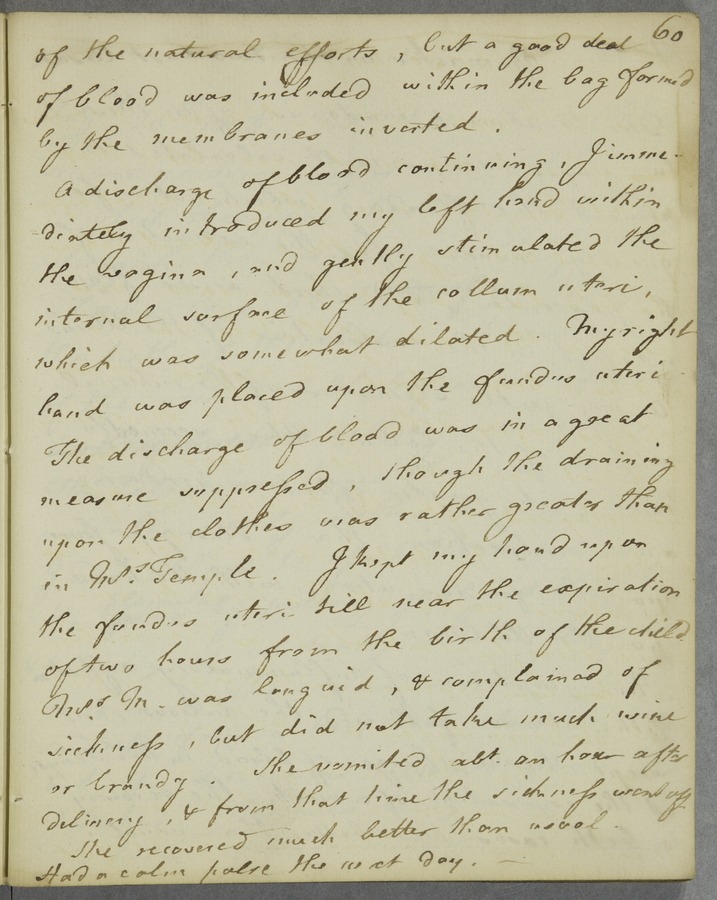 60
of the natural efforts, but a good deal
of blood was included within the bag formed
by the membranes inverted.
A discharge of blood continuing, I imme-
-diately introduced my left hand within
the vagina, and gently stimulated the
internal surface of the collum uteri,
which was somewhat dilated. My right
hand was placed upon the fundus uteri.
The discharge of blood was in a great
measure suppressed, though the draining
upon the clothes was rather greater than
in Mrs. Temple. I kept my hand upon
the fundus uteri till near the expiration
of two hours from the birth of the child.
Mrs M. was languid, & complained of
sickness, but did not take much wine
or brandy. She vomited abt. an hour after
delivery, & from that time the sickness went off
She recovered much better than usual.
Had a calm pulse the next day. —